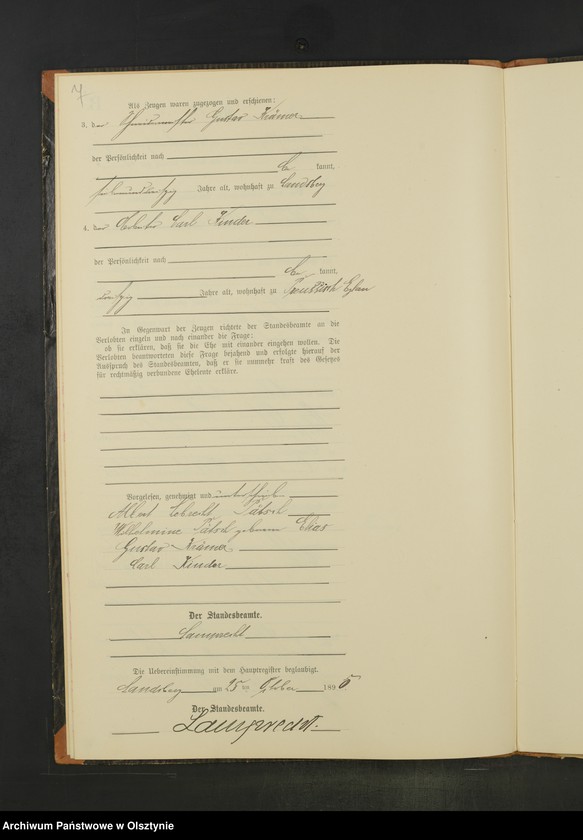 Als Zeugen waren zugezogen und erschienen:
3. der Gustav Krämer
der Persönlichkeit nach
kannt,
Jahre alt, wohnhaft zu Landsberg
4. der Carl Kinder
der Persönlichkeit nach
kannt,
Jahre alt, wohnhaft zu Preussisch Eylau
In Gegenwart der Zeugen richtete der Standesbeamte an die
Verlobten einzeln und nach einander die Frage:
ob sie erklären, daß sie die Ehe mit einander eingehen wollen. Die
Verlobten beantworteten diese Frage bejahend und erfolgte hierauf der
Ausspruch des Standesbeamten, daß er sie nunmehr kraft des Gesetzes
für rechtmäßig verbundene Eheleute erkläre.
Vorgelesen, genehmigt und unterschrieben
Albert Pätsch
Wilhelmine Pätsch geborene Elias
Gustav Krämer
Carl Kinder
Der Standesbeamte.
Lamprecht
Die Uebereinstimmung mit dem Hauptregister beglaubigt.
Landsberg am 25 ten Oktober 1895
Der Standesbeamte.
Lamprecht.
Archiwum Państwowe w Olsztynie